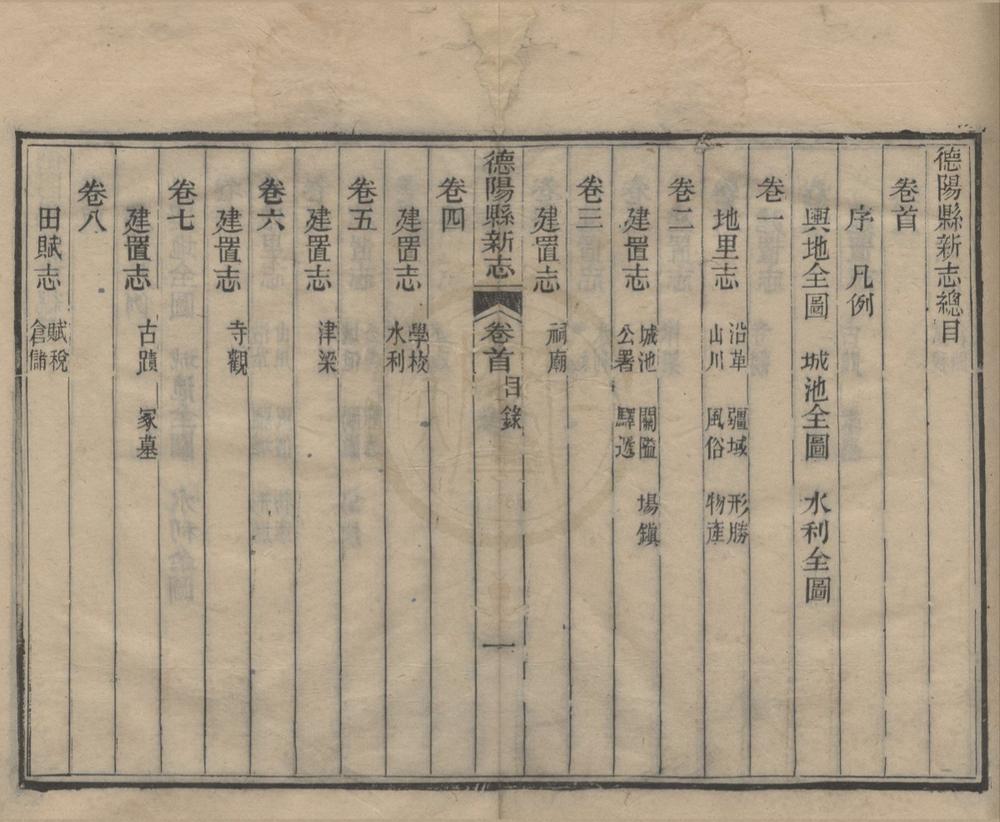 德陽縣新志總目
卷首
序 凡例
輿地全圖 城池全圖 水利全圖
卷一
地里志 沿革 疆域 形勝
山川 風俗 物產
卷二
建置志 城池 關隘 場鎭
公署 驛遞
卷三
建置志 祠廟
德陽縣新志 卷首 目錄 一
卷四
建置志 學校
水利
卷五
建置志 津梁
卷六
建置志 寺觀
卷七
建置志 古蹟 冢墓
卷八
田賦志 賦稅
倉儲